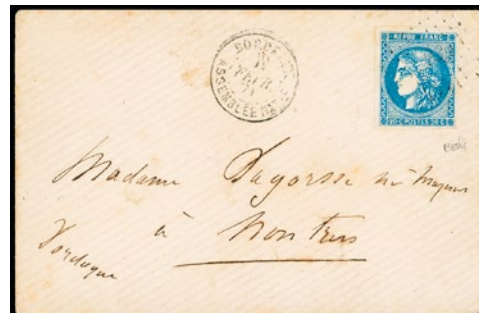 BORDEAUX
FEVR.
71
ASSEMBLEE NALE
REPUB FRANC
20 C POSTES 20 C
Madame Lagorsse née
à Nontron
Dordogne